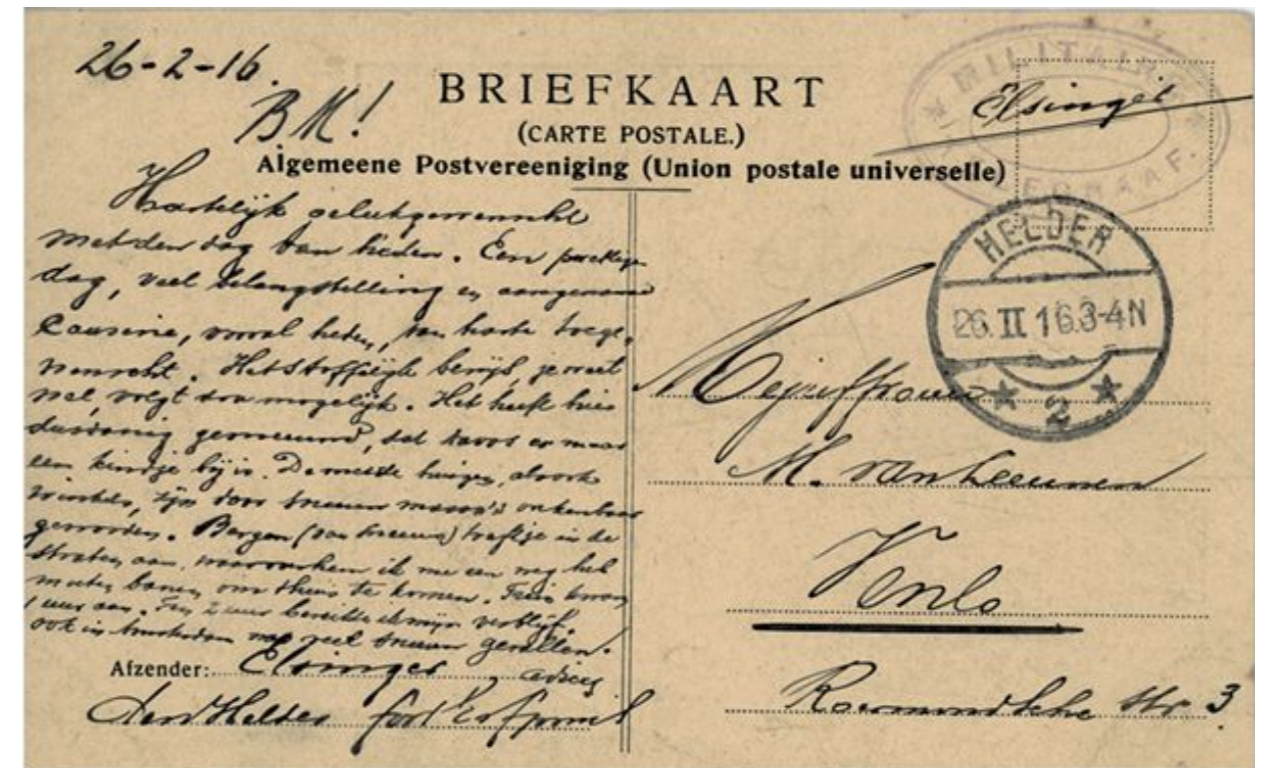 26-2-16.
BM!
BRIEFKAART
(CARTE POSTALE.)
Algemeene Postvereeniging (Union postale universelle)
MILITAIRE
TELEGRAAF.
Elsinger
HELDER
26.II 16.3-4N
2
Hartelijk gelukgewenscht
met den dag van heden. Een prettige
dag, veel belangstelling en aangename
Causerie, vooral heden, van harte toege-
wenscht. Het stoffelijk bewijs, je weet
wel, volgt zoo mogelijk. Het heeft hier
dusdanig gesneeuwd, dat er maar
een kindje bij is. De meeste huizen, alsook
winkels, zijn door sneeuw massa's onkenbaar
geworden. Bergen (van sneeuw) trof je in de
straten aan, waardoor ik me een weg heb
moeten banen om thuis te komen. Trein kwam
1 uur aan. Ten 2 uur bereikte ik mijn verblijf.
ook in Amsterdam veel sneeuw gevallen.
Afzender: Elsinger
den Helder fort Erfprins
Mejuffrouw
M. van Leeuwen
Venlo
Roermondsche str. 3